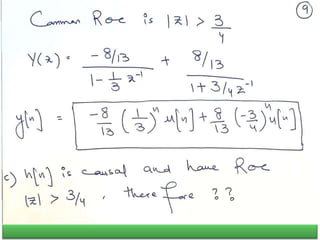 9
Common Roc is |z| > 3/4
Y(z) = (-8/13)/(1 - 1/3 z^-1) + (8/13)/(1 + 3/4 z^-1)
y[n] = -8/13 (1/3)^n u[n] + 8/13 (-3/4)^n u[n]
c) h[n] is causal and have Roc
|z| > 3/4 . there fore ??